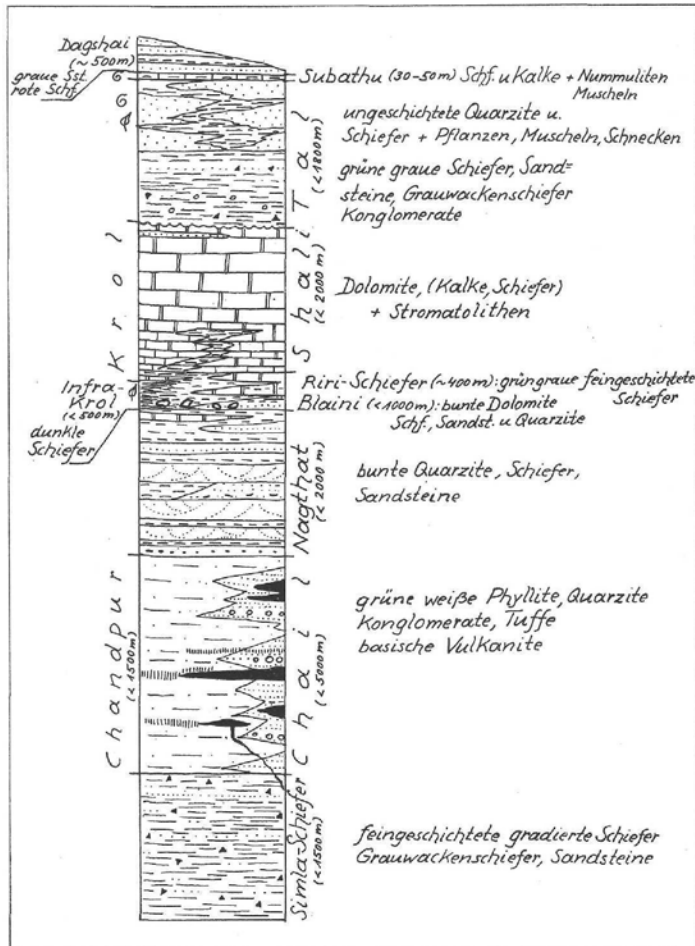 Dagshai
(~500m)
graue Sst.
rote Schf.
Subathu (30-50m) Schf. u. Kalke + Nummuliten
Muscheln
ungeschichtete Quarzite u.
Schiefer + Pflanzen, Muscheln, Schnecken
Tal
(<1800m)
grüne graue Schiefer, Sand=
steine, Grauwackenschiefer
Konglomerate
Krol
Shali
(<2000 m)
Dolomite, (Kalke, Schiefer)
+ Stromatolithen
Infra-
Krol
(<500m)
dunkle
Schiefer
Riri-Schiefer (~400m): grüngraue feingeschichtete
Schiefer
Blaini (<1000m): bunte Dolomite
Schf., Sandst. u. Quarzite
Nagthat
(<2000 m)
bunte Quarzite, Schiefer,
Sandsteine
Chandpur
(<1500m)
Chail
(<5000m)
grüne weiße Phyllite, Quarzite
Konglomerate, Tuffe
basische Vulkanite
Simla-Schiefer
(<1500m)
feingeschichtete gradierte Schiefer
Grauwackenschiefer, Sandsteine